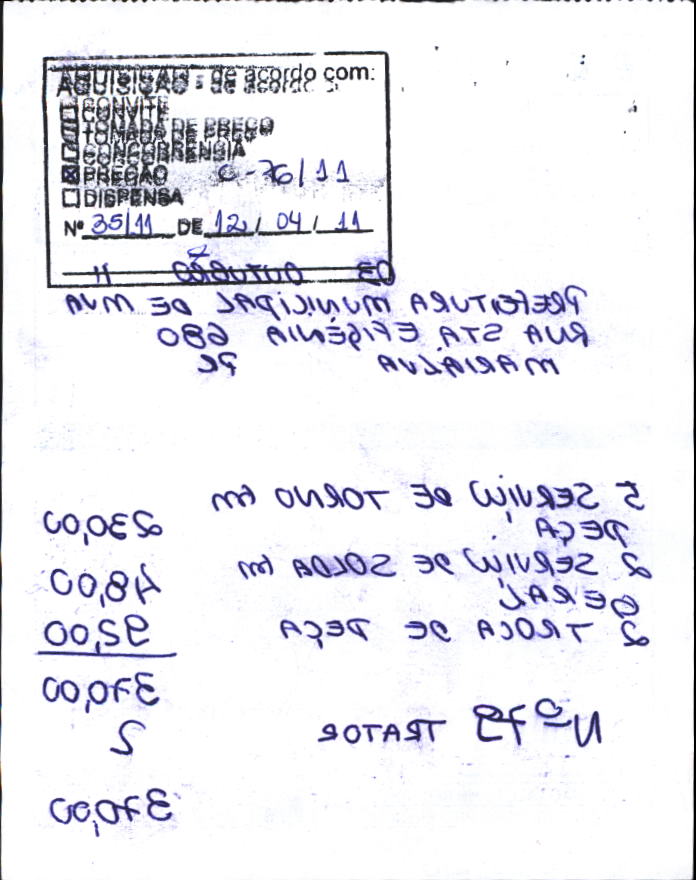 AQUISIÇÃO - de acordo com:
☐ CONVITE
☐ TOMADA DE PREÇO
☐ CONCORRENCIA
☒ PREGÃO C-76/11
☐ DISPENSA
Nº 35/11 DE 12 / 04 / 11
03 OUTUBRO 11
PREFEITURA MUNICIPAL DE MVA
RUA STA EFIGÊNIA 680
MARIALVA PR
5 SERVIÇO DE TORNO EM
PEÇA 230,00
2 SERVIÇO DE SOLDA EM
GERAL 48,00
2 TROCA DE PEÇA 92,00
370,00
Nº 79 TRATOR
370,00